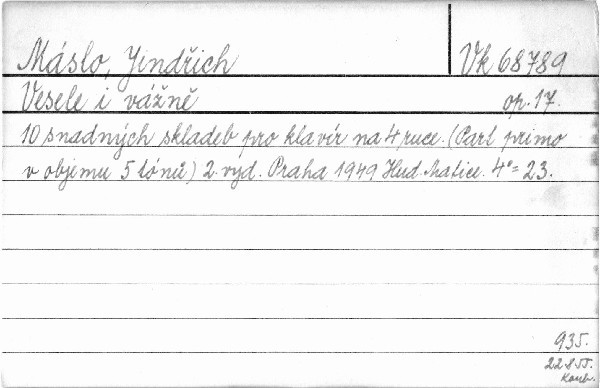 Máslo, Jindřich Vk 68789
Vesele i vážně op. 17.
10 snadných skladeb pro klavír na 4 ruce. (Part primo
v objemu 5 tónů) 2. vyd. Praha 1949 Hud. Matice. 4°= 23.
935.
22 8 55.